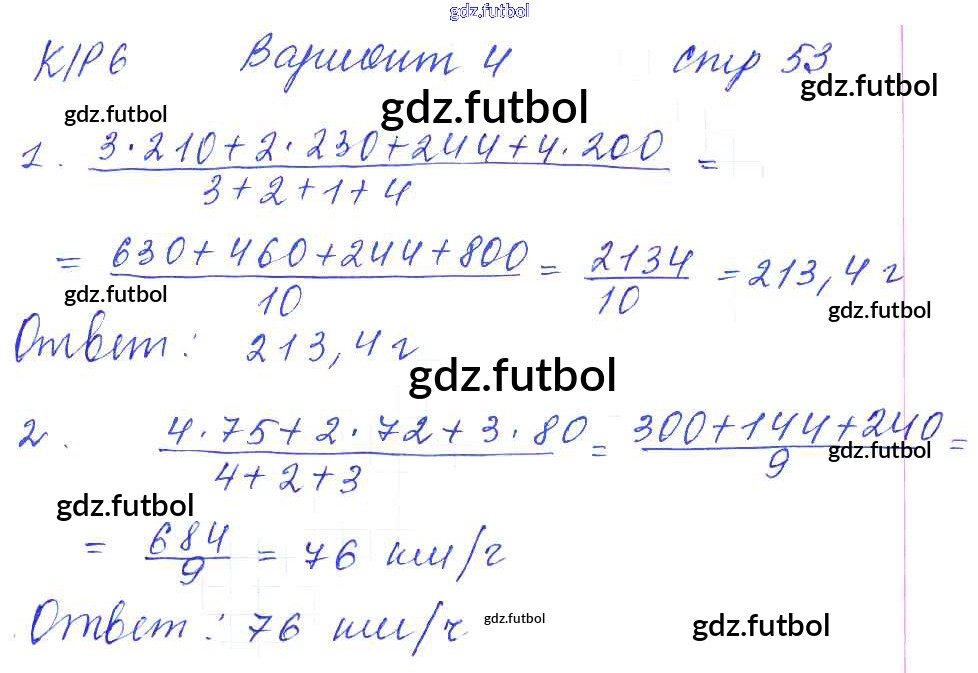 gdz.futbol
К/Р 6 Вариант 4 стр 53
gdz.futbol gdz.futbol gdz.futbol
1. (3·210+2·230+244+4·200)/(3+2+1+4) =
= (630+460+244+800)/10 = 2134/10 = 213,4 г
gdz.futbol gdz.futbol
Ответ: 213,4 г
gdz.futbol
2. (4·75+2·72+3·80)/(4+2+3) = (300+144+240)/9 =
gdz.futbol
gdz.futbol
= 684/9 = 76 км/г
Ответ: 76 км/ч
gdz.futbol gdz.futbol